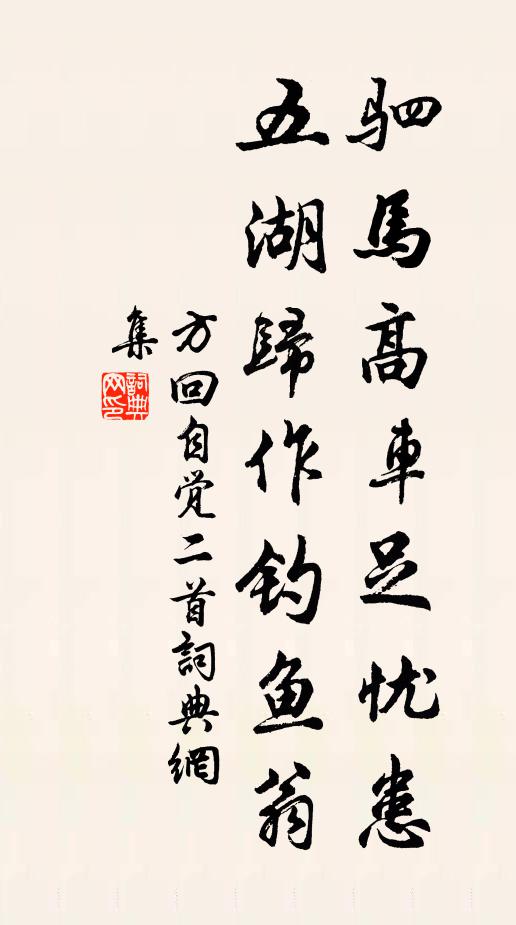 驷馬髙車足忧患
五湖歸作钓鱼翁
方回自觉二首詞典網
集
詞典网印